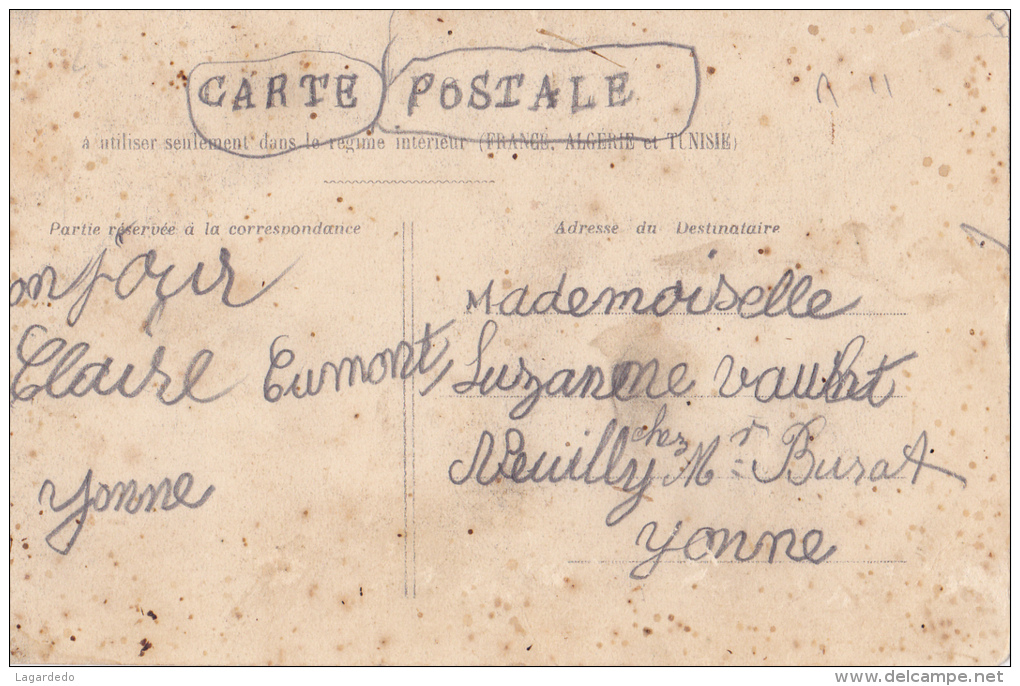 CARTE POSTALE
à utiliser seulement dans le régime intérieur (FRANCE, ALGÉRIE et TUNISIE)
Partie réservée à la correspondance
onjour
Claire Eumont,
Yonne
Adresse du Destinataire
Mademoiselle
Suzanne
Neuilly chez Mr Busat
Yonne
Lagardedo
delcampe.net